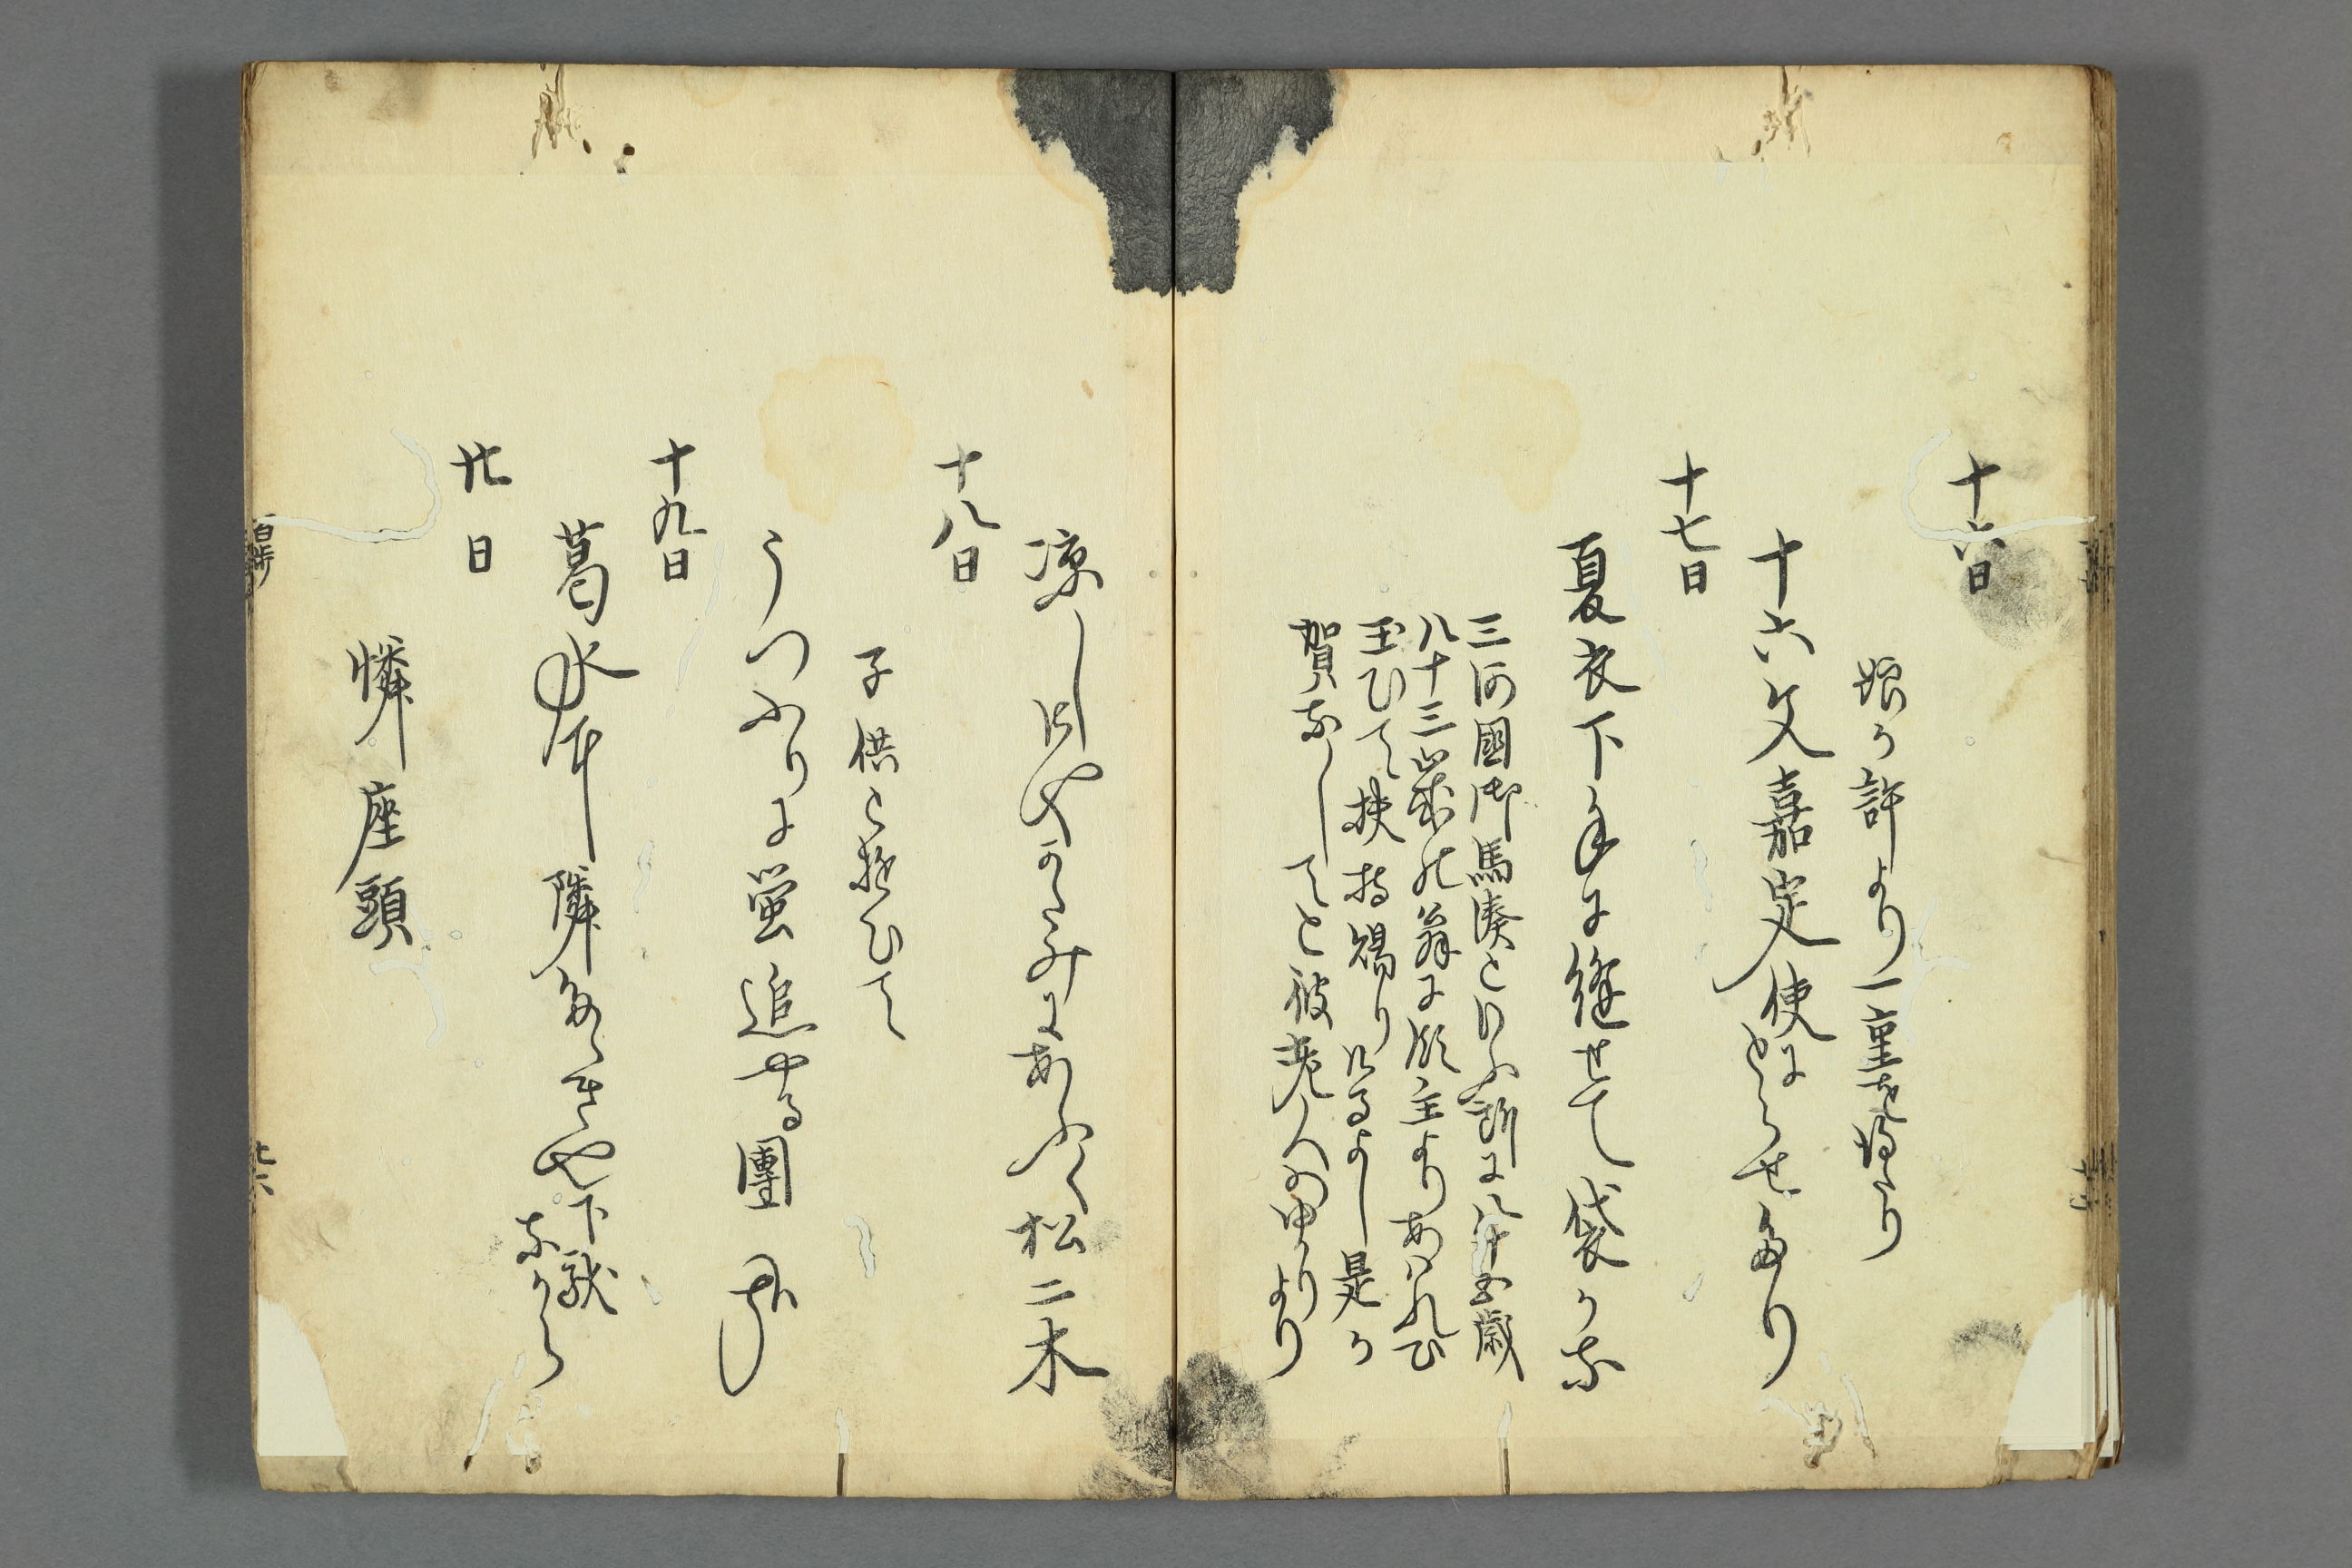 十六日
娘か許より一重を贈けり
十六文嘉定使にとらせたり
十七日
夏衣下手に縫せて袋かな
三河國御馬湊といふ所に八十五歳
八十三歳の翁に殿主よりあはれひ
玉ひて扶持賜りけるよし是か
賀なしてと彼老人のゆかりより
涼しけやかたみにあふく松二木
十八日
子供と遊ひて
うつふりに蛍追やる團
十九日
葛水や隣たゝきや下戦
なから
廿日
憐座頭